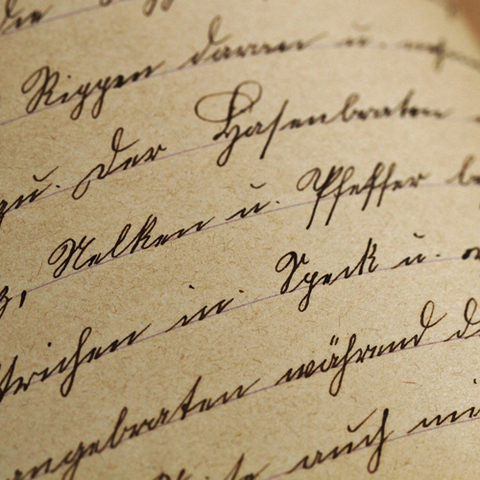 die
Rippen daran u.
zu. Der Hasenbraten
Nelken u. Pfeffer be
strichen in. Speck u.
angebraten während d
auch mi